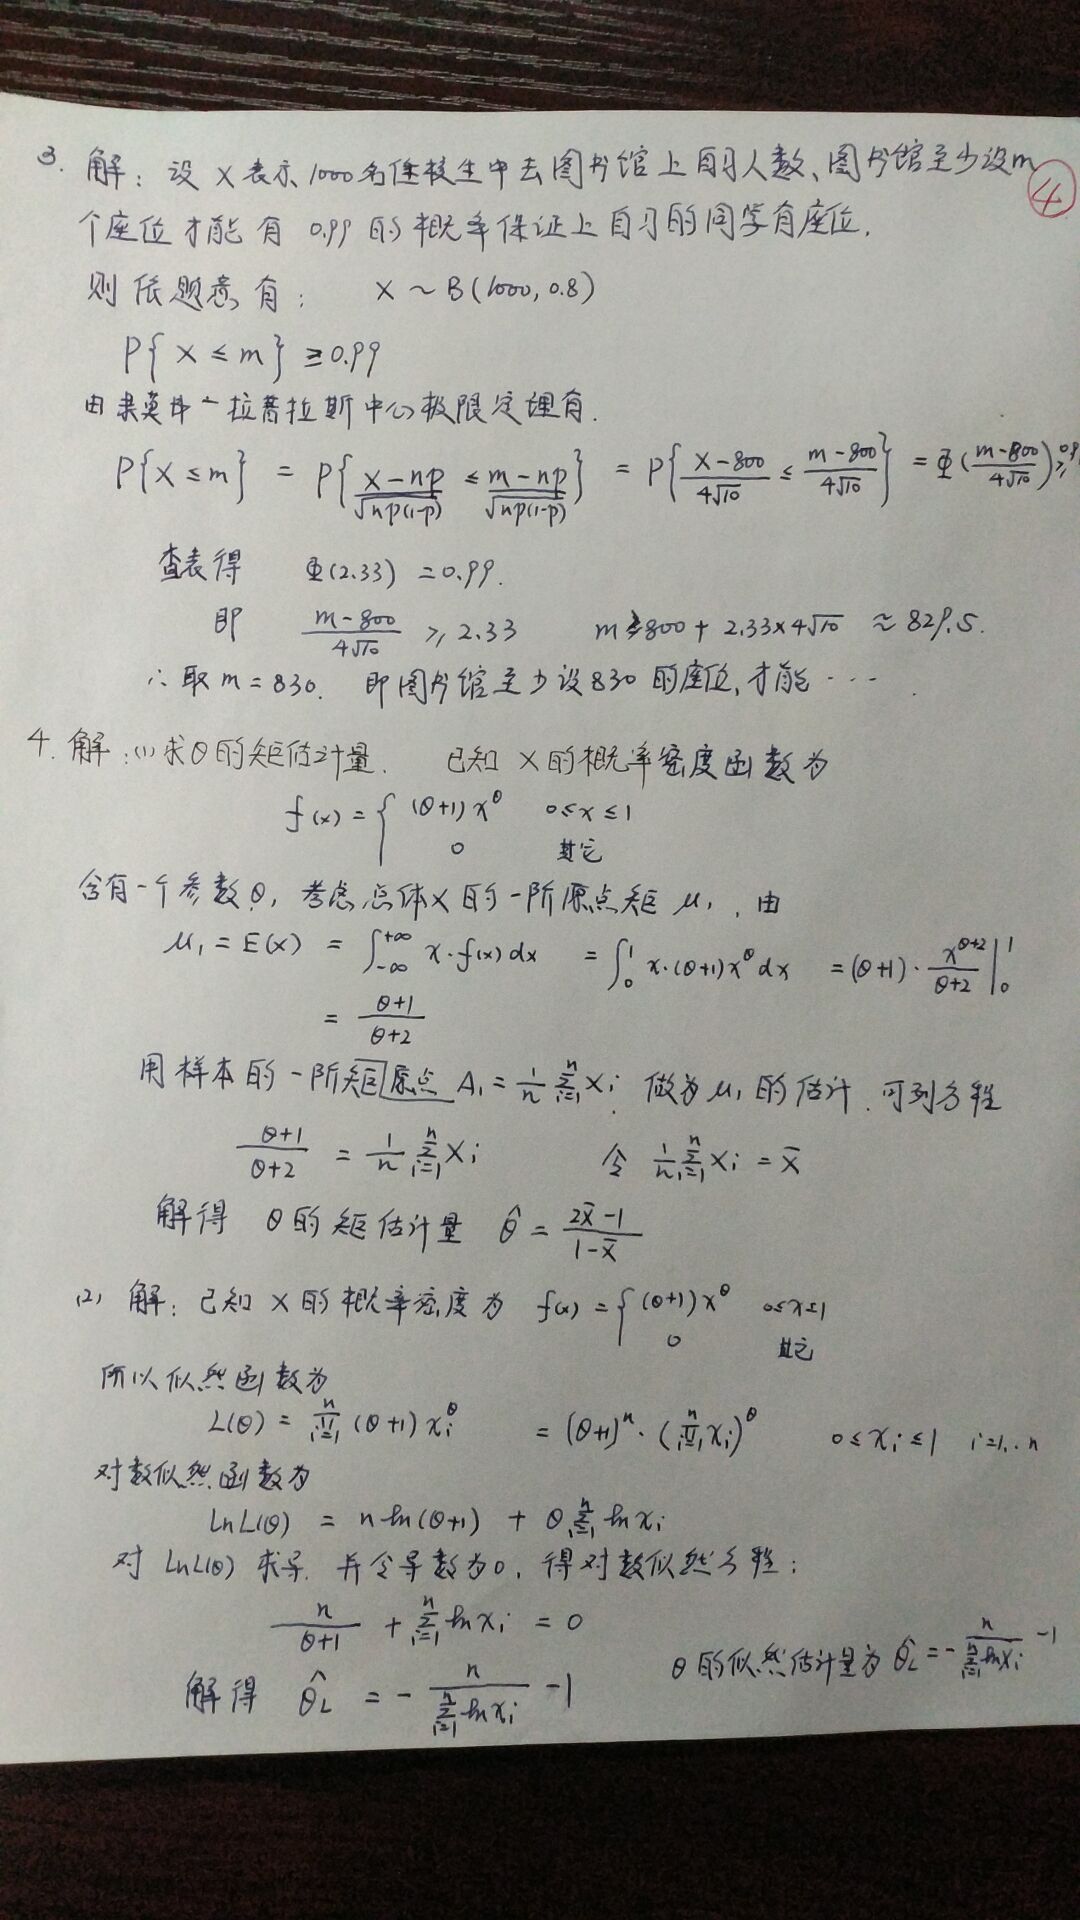 ④
3. 解：设X表示1000名住校生中去图书馆上自习人数、图书馆至少设m
个座位才能有0.99的概率保证上自习的同学有座位.
则依题意有： X ~ B(1000, 0.8)
P{X ≤ m} ≥ 0.99
由棣莫弗-拉普拉斯中心极限定理有.
P{X ≤ m} = P{(X-np)/√(np(1-p)) ≤ (m-np)/√(np(1-p))} = P{(X-800)/(4√10) ≤ (m-800)/(4√10)} = Φ((m-800)/(4√10)) ≥
查表得 Φ(2.33) = 0.99.
即 (m-800)/(4√10) ≥ 2.33 m ≥ 800 + 2.33×4√10 ≈ 829.5.
∴ 取m = 830. 即图书馆至少设830的座位, 才能…
4. 解：(1) 求θ的矩估计量. 已知X的概率密度函数为
f(x) = { (θ+1)x^θ 0≤x≤1
0 其它
含有一个参数θ, 考虑总体X的一阶原点矩 μ₁, 由
μ₁ = E(x) = ∫_{-∞}^{+∞} x·f(x)dx = ∫_0^1 x·(θ+1)x^θ dx = (θ+1)·x^{θ+2}/(θ+2) |_0^1
= (θ+1)/(θ+2)
用样本的一阶矩原点 A₁ = 1/n Σ_{i=1}^n Xi 做为μ₁的估计. 可列方程
(θ+1)/(θ+2) = 1/n Σ_{i=1}^n Xi 令 1/n Σ_{i=1}^n Xi = X̄
解得 θ的矩估计量 θ̂ = (2X̄-1)/(1-X̄)
(2) 解：已知X的概率密度为 f(x) = { (θ+1)x^θ 0≤x≤1
0 其它
所以似然函数为
L(θ) = Π_{i=1}^n (θ+1)x_i^θ = (θ+1)^n·(Π_{i=1}^n x_i)^θ 0≤x_i≤1 i=1,..n
对数似然函数为
LnL(θ) = n ln(θ+1) + θ Σ_{i=1}^n ln x_i
对 LnL(θ) 求导. 并令导数为0, 得对数似然方程：
n/(θ+1) + Σ_{i=1}^n ln x_i = 0
解得 θ̂_L = - n/(Σ_{i=1}^n ln x_i) - 1
θ的似然估计量为 θ̂_L = - n/(Σ_{i=1}^n ln X_i) - 1